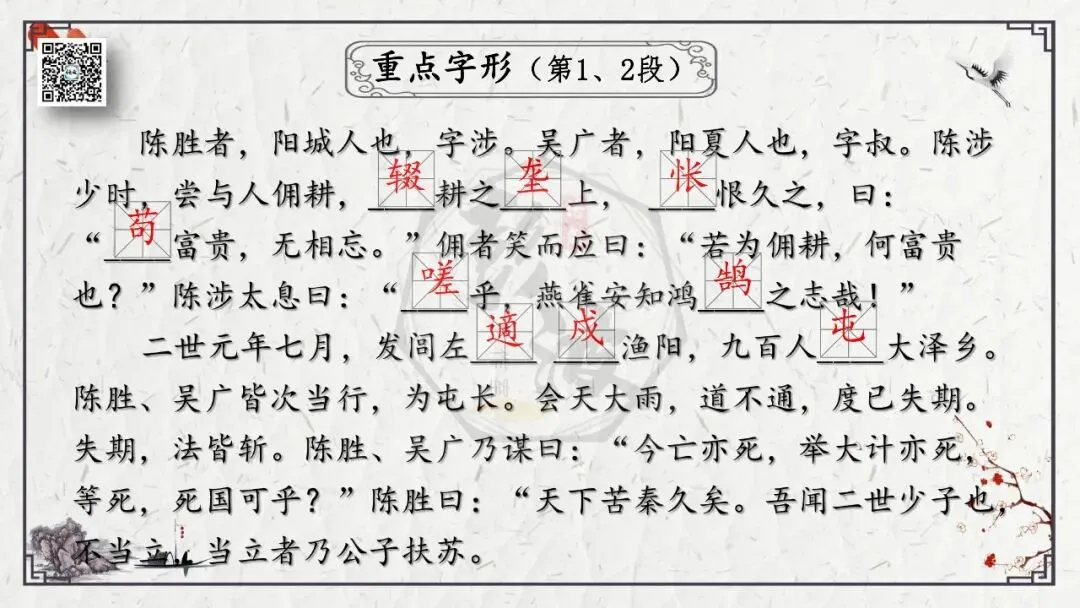 重点字形（第1、2段）
陈胜者，阳城人也，字涉。吴广者，阳夏人也，字叔。陈涉
少时，尝与人佣耕，辍耕之垄上，怅恨久之，曰：
“苟富贵，无相忘。”佣者笑而应曰：“若为佣耕，何富贵
也？”陈涉太息曰：“嗟乎，燕雀安知鸿鹄之志哉！”
二世元年七月，发闾左適戍渔阳，九百人屯大泽乡。
陈胜、吴广皆次当行，为屯长。会天大雨，道不通，度已失期。
失期，法皆斩。陈胜、吴广乃谋曰：“今亡亦死，举大计亦死，
等死，死国可乎？”陈胜曰：“天下苦秦久矣。吾闻二世少子也，
不当立，当立者乃公子扶苏。